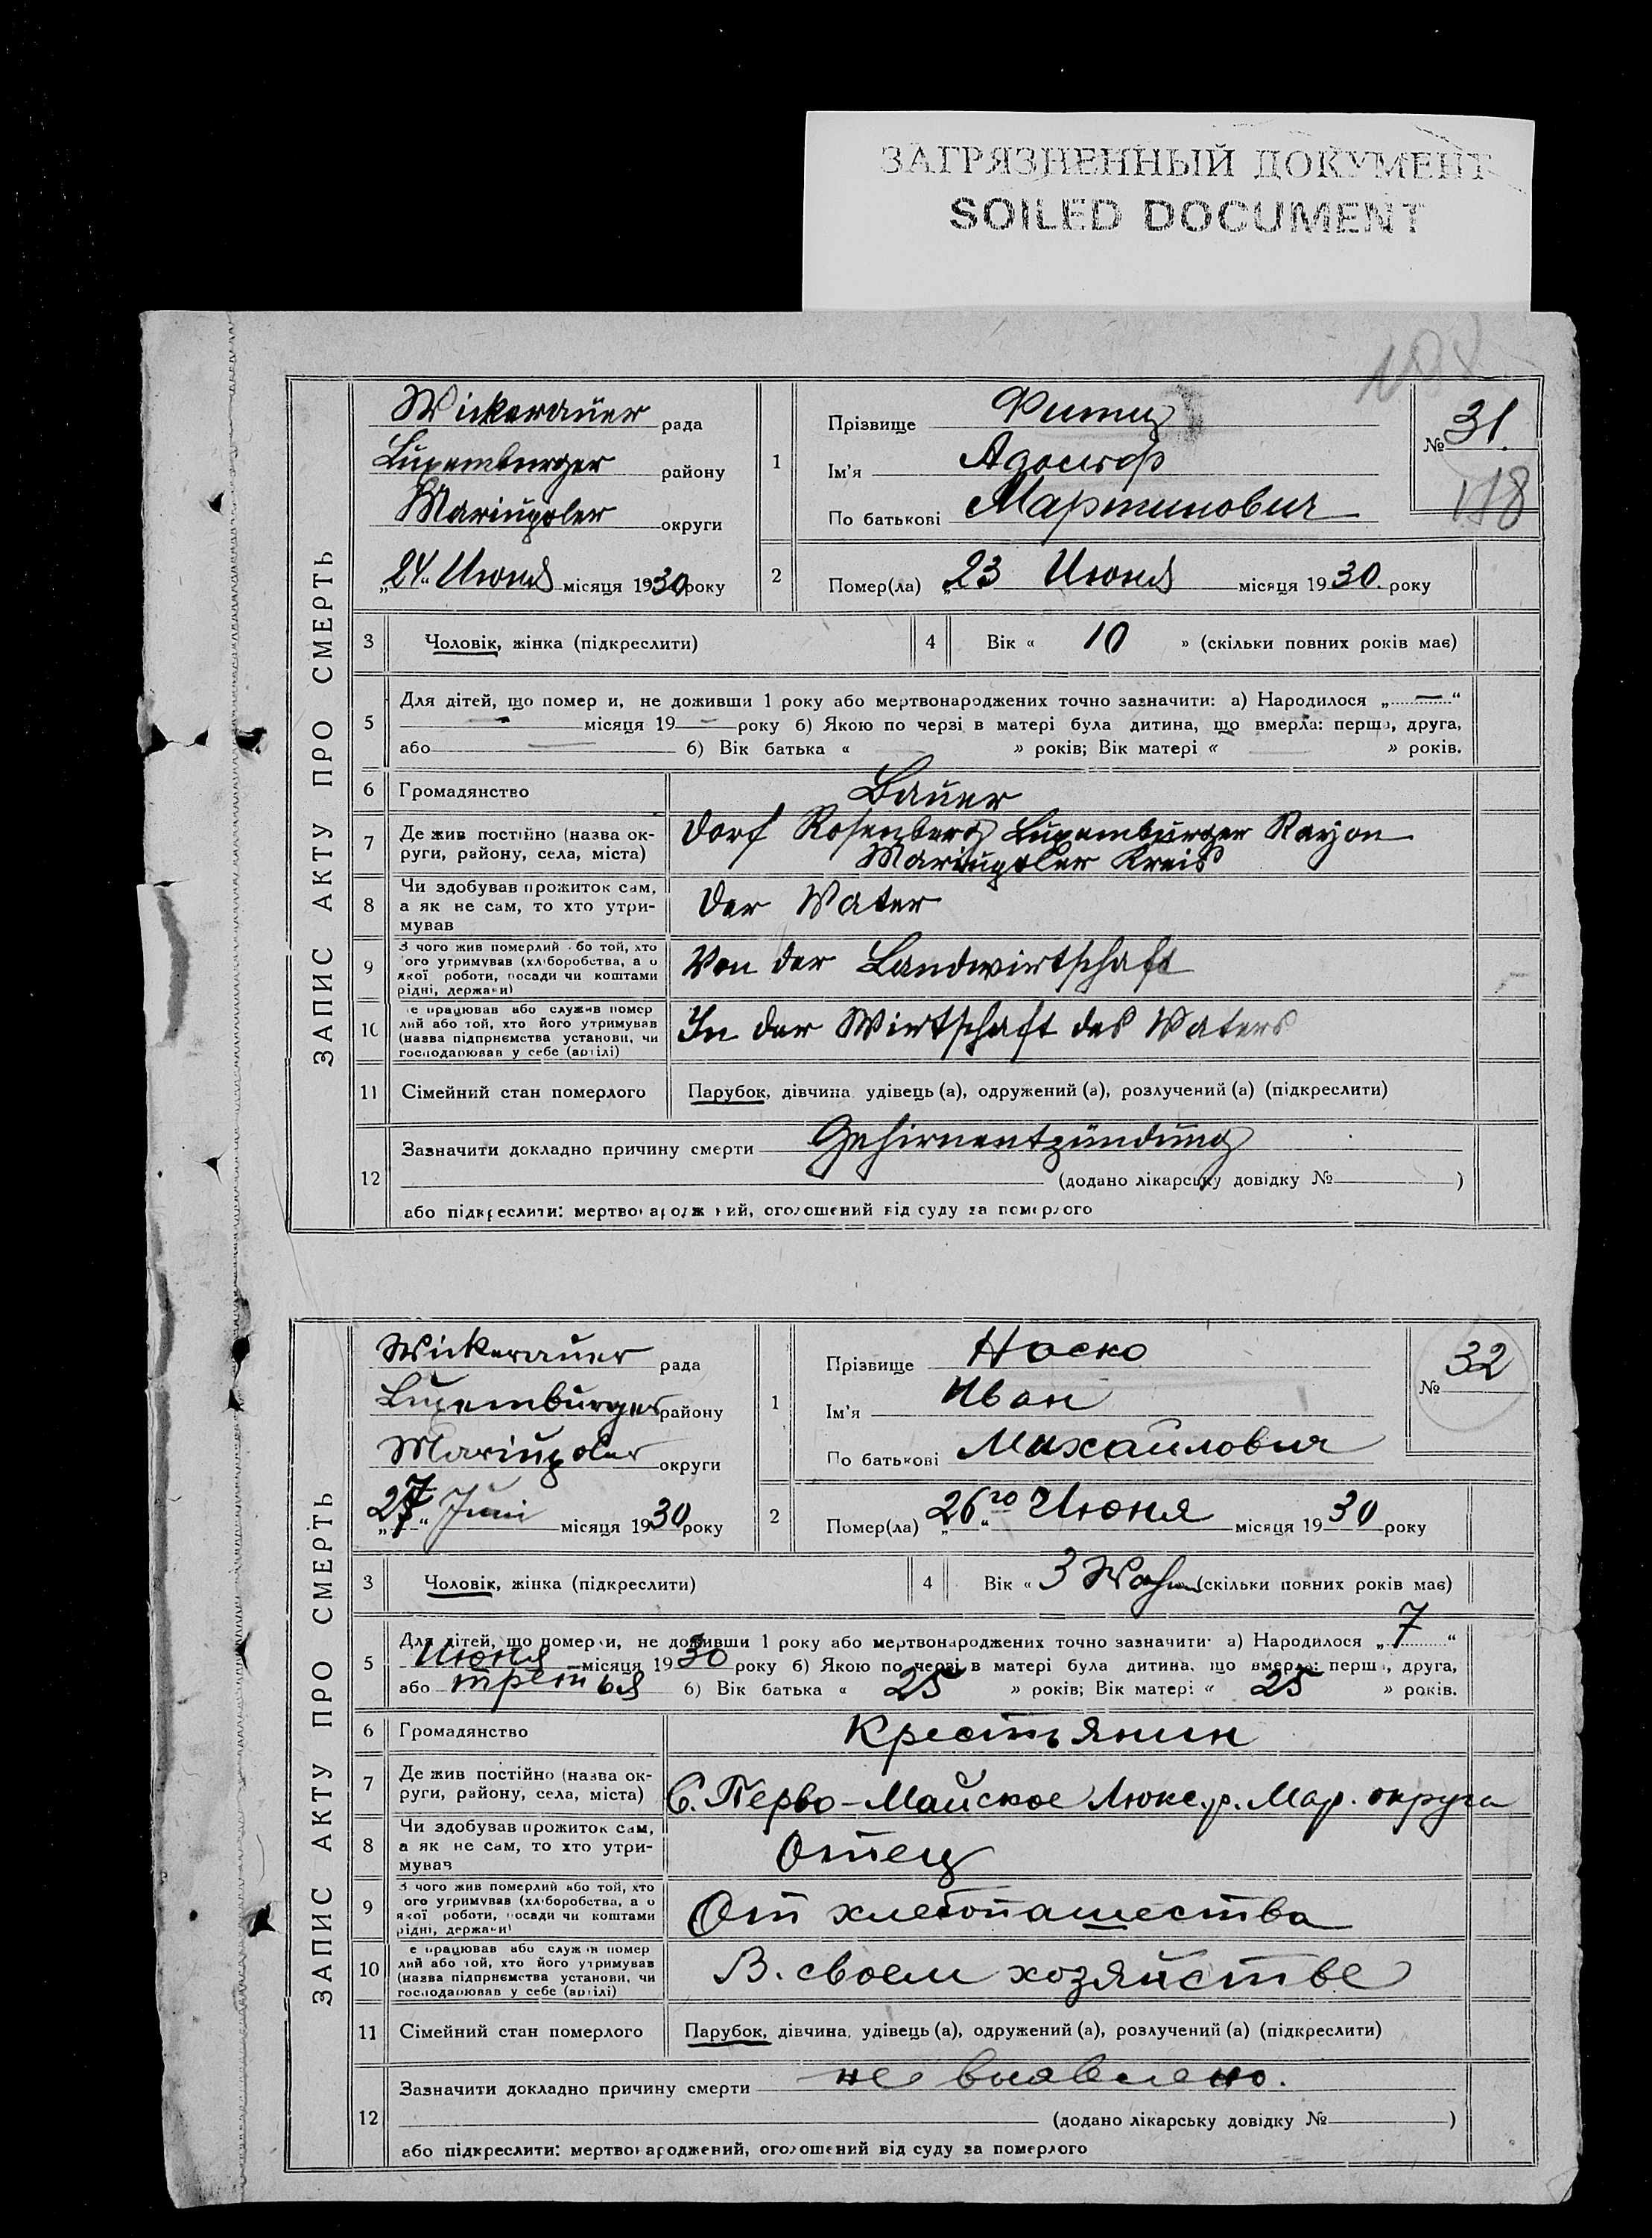 ЗАГРЯЗНЕННЫЙ ДОКУМЕНТ
SOILED DOCUMENT
ЗАПИС АКТУ ПРО СМЕРТЬ
Wickerauer рада
Luxemburger району
Mariupoler округи
„24“ Июня місяця 1930 року
1
Прізвище Фитц
Ім'я Адольф
По батькові Мартинович
№ 31.
118
2 Помер(ла) „23 Июня місяця 1930. року
3 Чоловік, жінка (підкреслити)
4 Вік « 10 » (скільки повних років має)
5 Для дітей, що помер и, не доживши 1 року або мертвонароджених точно зазначити: а) Народилося „ — “
— місяця 19 — року б) Якою по черзі в матері була дитина, що вмерла: перша, друга,
або — б) Вік батька « — » років; Вік матері « — » років.
6 Громадянство Bauer
7 Де жив постійно (назва ок-
руги, району, села, міста)
Dorf Rosenberg Luxemburger Rayon
Mariupoler Kreis
8 Чи здобував прожиток сам,
а як не сам, то хто утри-
мував
Der Vater
9 З чого жив померлий або той, хто
ого утримував (хліборобства, а о
якої роботи, посади чи коштами
рідні, держави)
Von der Landwirtschaft
10 е працював або служив помер
лий або той, хто його утримував
(назва підприємства установи, чи
господарював у себе (артілі)
In der Wirtschaft des Vaters
11 Сімейний стан померлого Парубок, дівчина, удівець (а), одружений (а), розлучений (а) (підкреслити)
12 Зазначити докладно причину смерти Gehirnentzündung
(додано лікарську довідку № )
або підкреслити: мертвонароджений, оголошений від суду за померлого
ЗАПИС АКТУ ПРО СМЕРТЬ
Wickerauer рада
Luxemburger району
Mariupoler округи
„27“ Juni місяця 1930 року
1
Прізвище Носко
Ім'я Иван
По батькові Михайлович
№ 32
2 Помер(ла) „26го“ Июня місяця 1930 року
3 Чоловік, жінка (підкреслити)
4 Вік « 3 Wochen (скільки повних років має)
5 Для дітей, що померли, не доживши 1 року або мертвонароджених точно зазначити: а) Народилося „ 7 “
Июня місяця 1930 року б) Якою по черзі в матері була дитина, що вмерла: перша, друга,
або третья б) Вік батька « 25 » років; Вік матері « 25 » років.
6 Громадянство Крестьянин
7 Де жив постійно (назва ок-
руги, району, села, міста)
С. Перво-Майское Люкс. р. Мар. округа
8 Чи здобував прожиток сам,
а як не сам, то хто утри-
мував
Отец
9 З чого жив померлий або той, хто
ого утримував (хліборобства, а о
якої роботи, посади чи коштами
рідні, держави)
От хлебопашества
10 е працював або служив помер
лий або той, хто його утримував
(назва підприємства установи, чи
господарював у себе (артілі)
В. своем хозяйстве
11 Сімейний стан померлого Парубок, дівчина, удівець (а), одружений (а), розлучений (а) (підкреслити)
12 Зазначити докладно причину смерти не выявлено.
(додано лікарську довідку № )
або підкреслити: мертвонароджений, оголошений від суду за померлого